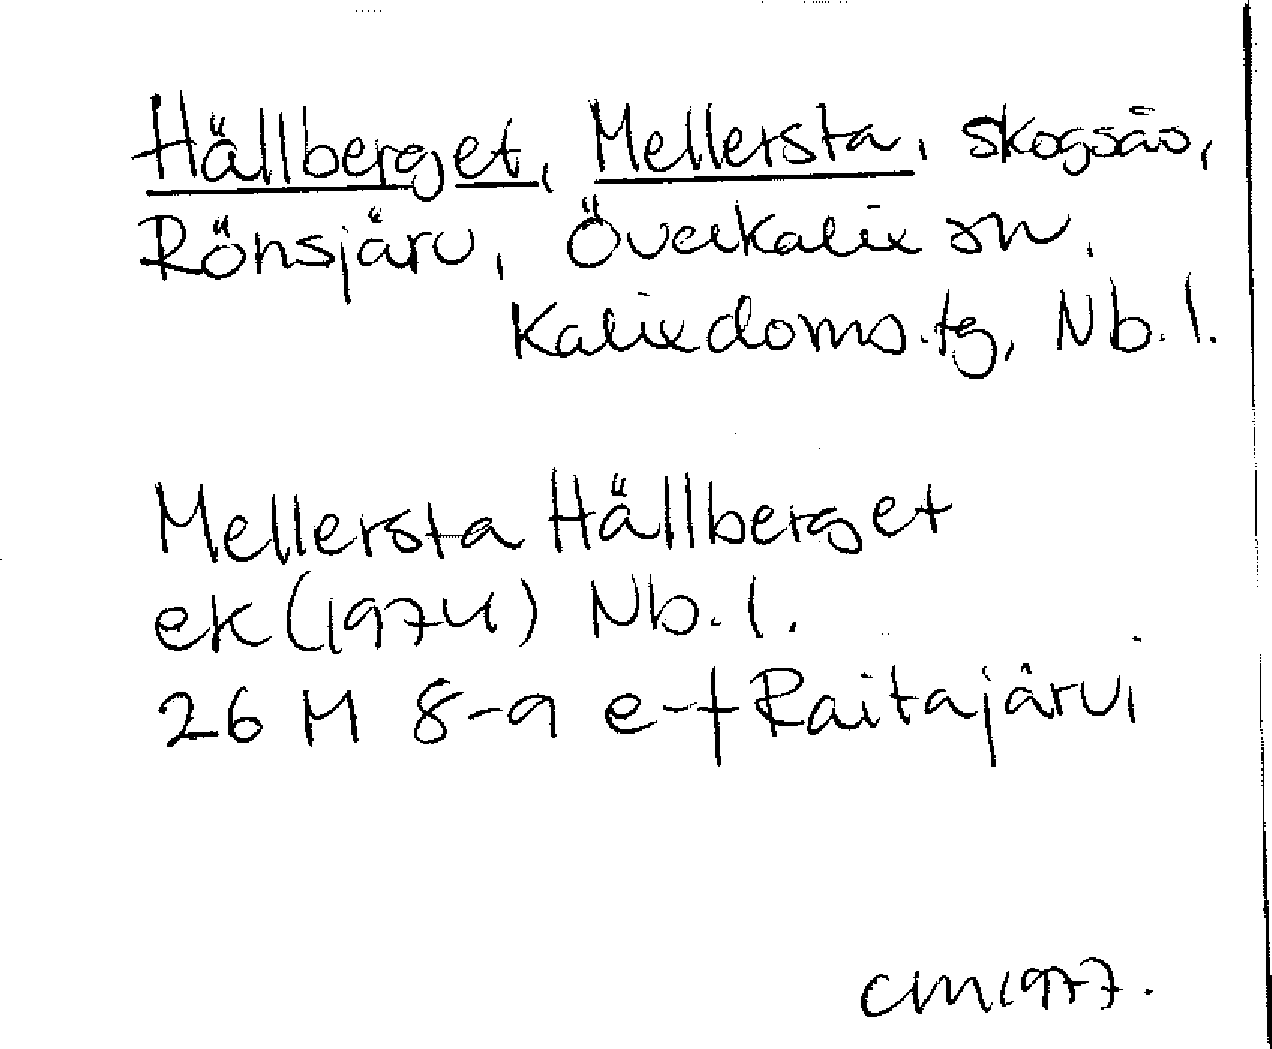 Hällberget, Mellersta, skogsås,
Rönsjärv, Överkalix sn.
Kalix doms.tg, Nb. l.
Mellersta Hällberget
ek (1974) Nb. l.
26 M 8-9 e-f Raitajärvi
CM 1977.